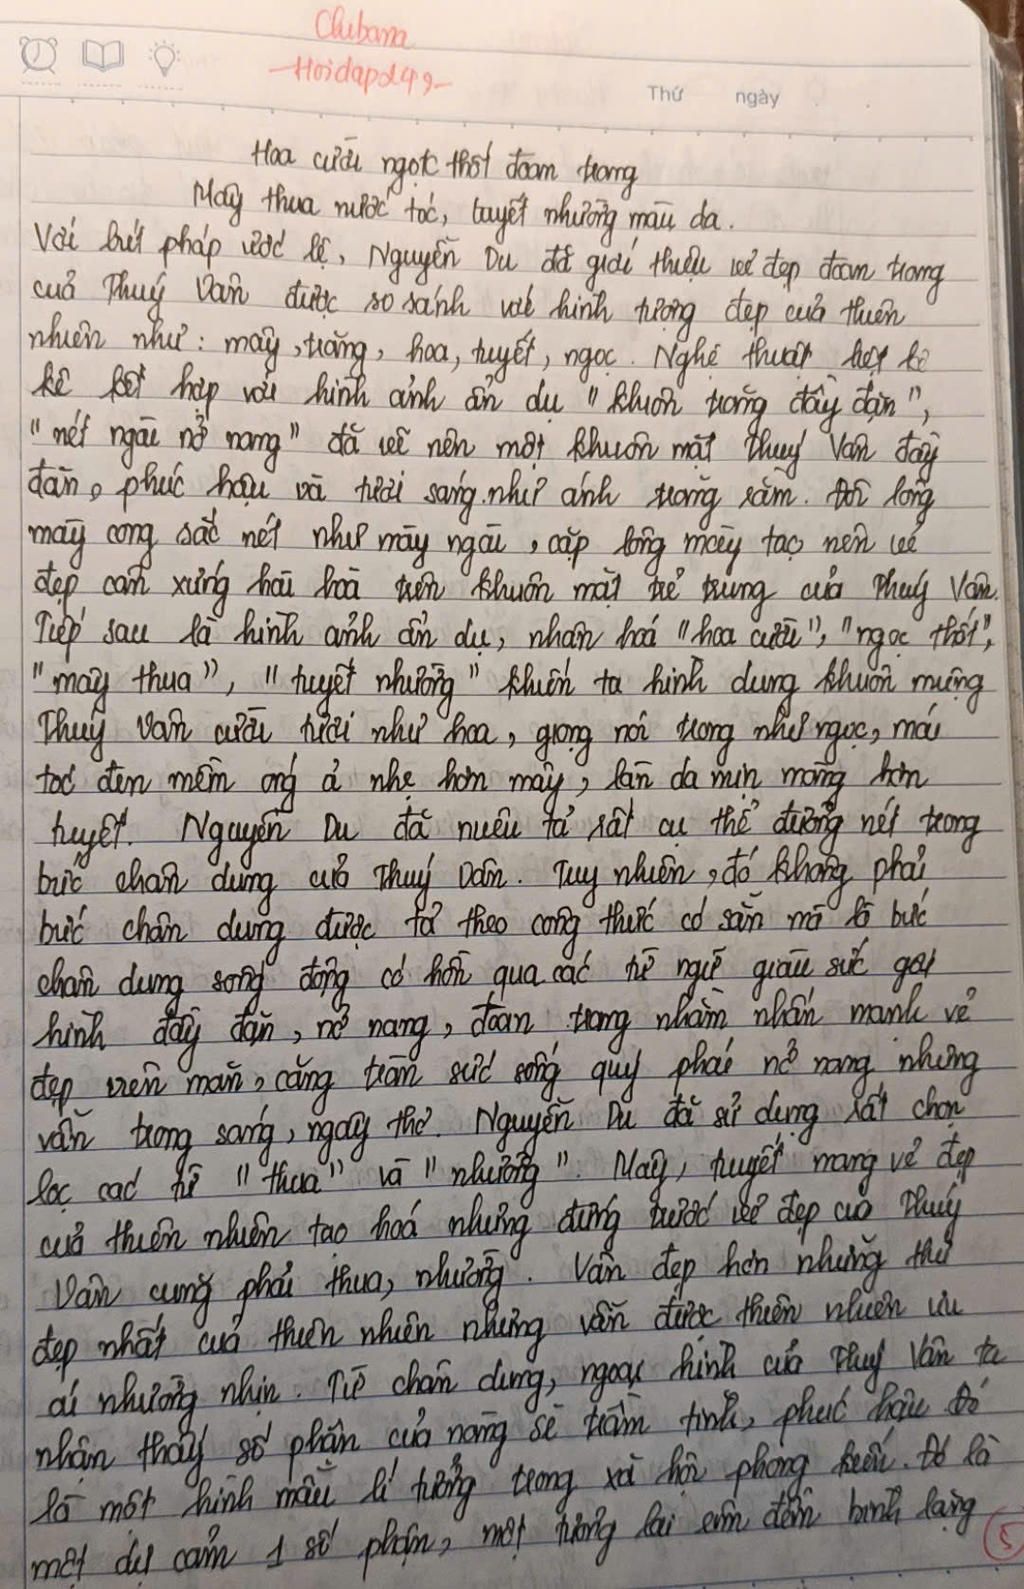 Chibana
-Hoidap247-
Thứ ngày
Hoa cười ngọc thốt đoan trang
Mây thua nước tóc, tuyết nhường màu da.
Với bút pháp ước lệ, Nguyễn Du đã giới thiệu vẻ đẹp đoan trang
của Thuý Vân được so sánh với hình tượng đẹp của thiên
nhiên như: mây, trăng, hoa, tuyết, ngọc. Nghệ thuật liệt kê
kê kết hợp với hình ảnh ẩn dụ "khuôn trăng đầy đặn",
"nét ngài nở nang" đã vẽ nên một khuôn mặt Thuý Vân đầy
đặn, phúc hậu và tươi sáng như ánh trăng rằm. Đôi lông
mày cong sắc nét như mày ngài, cặp lông mày tạo nên vẻ
đẹp cân xứng hài hoà trên khuôn mặt trẻ trung của Thuý Vân.
Tiếp sau là hình ảnh ẩn dụ, nhân hoá "hoa cười", "ngọc thốt",
"mây thua", "tuyết nhường" khiến ta hình dung khuôn miệng
Thuý Vân cười tươi như hoa, giọng nói trong như ngọc, mái
tóc đen mềm óng ả nhẹ hơn mây, làn da mịn màng hơn
tuyết. Nguyễn Du đã miêu tả rất cụ thể đường nét trong
bức chân dung của Thuý Vân. Tuy nhiên, đó không phải
bức chân dung được tả theo công thức có sẵn mà là bức
chân dung sống động có hồn qua các từ ngữ giàu sức gợi
hình đầy đặn, nở nang, đoan trang nhằm nhấn mạnh vẻ
đẹp viên mãn, căng tràn sức sống quý phái nở nang nhưng
vẫn trong sáng, ngây thơ. Nguyễn Du đã sử dụng rất chọn
lọc các từ "thua" và "nhường". Mây, tuyết mang vẻ đẹp
của thiên nhiên tạo hoá nhưng đứng trước vẻ đẹp của Thuý
Vân cũng phải thua, nhường. Vân đẹp hơn những thứ
đẹp nhất của thiên nhiên nhưng vẫn được thiên nhiên ưu
ái nhường nhịn. Từ chân dung, ngoại hình của Thuý Vân ta
nhận thấy số phận của nàng sẽ trầm tĩnh, phúc hậu
là một hình mẫu lí tưởng trong xã hội phong kiến. Đó là
một dự cảm 1 số phận, một tương lai êm đềm bình lặng
5